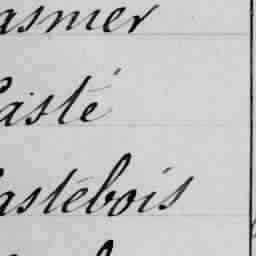 asmer
Casté
Castébois